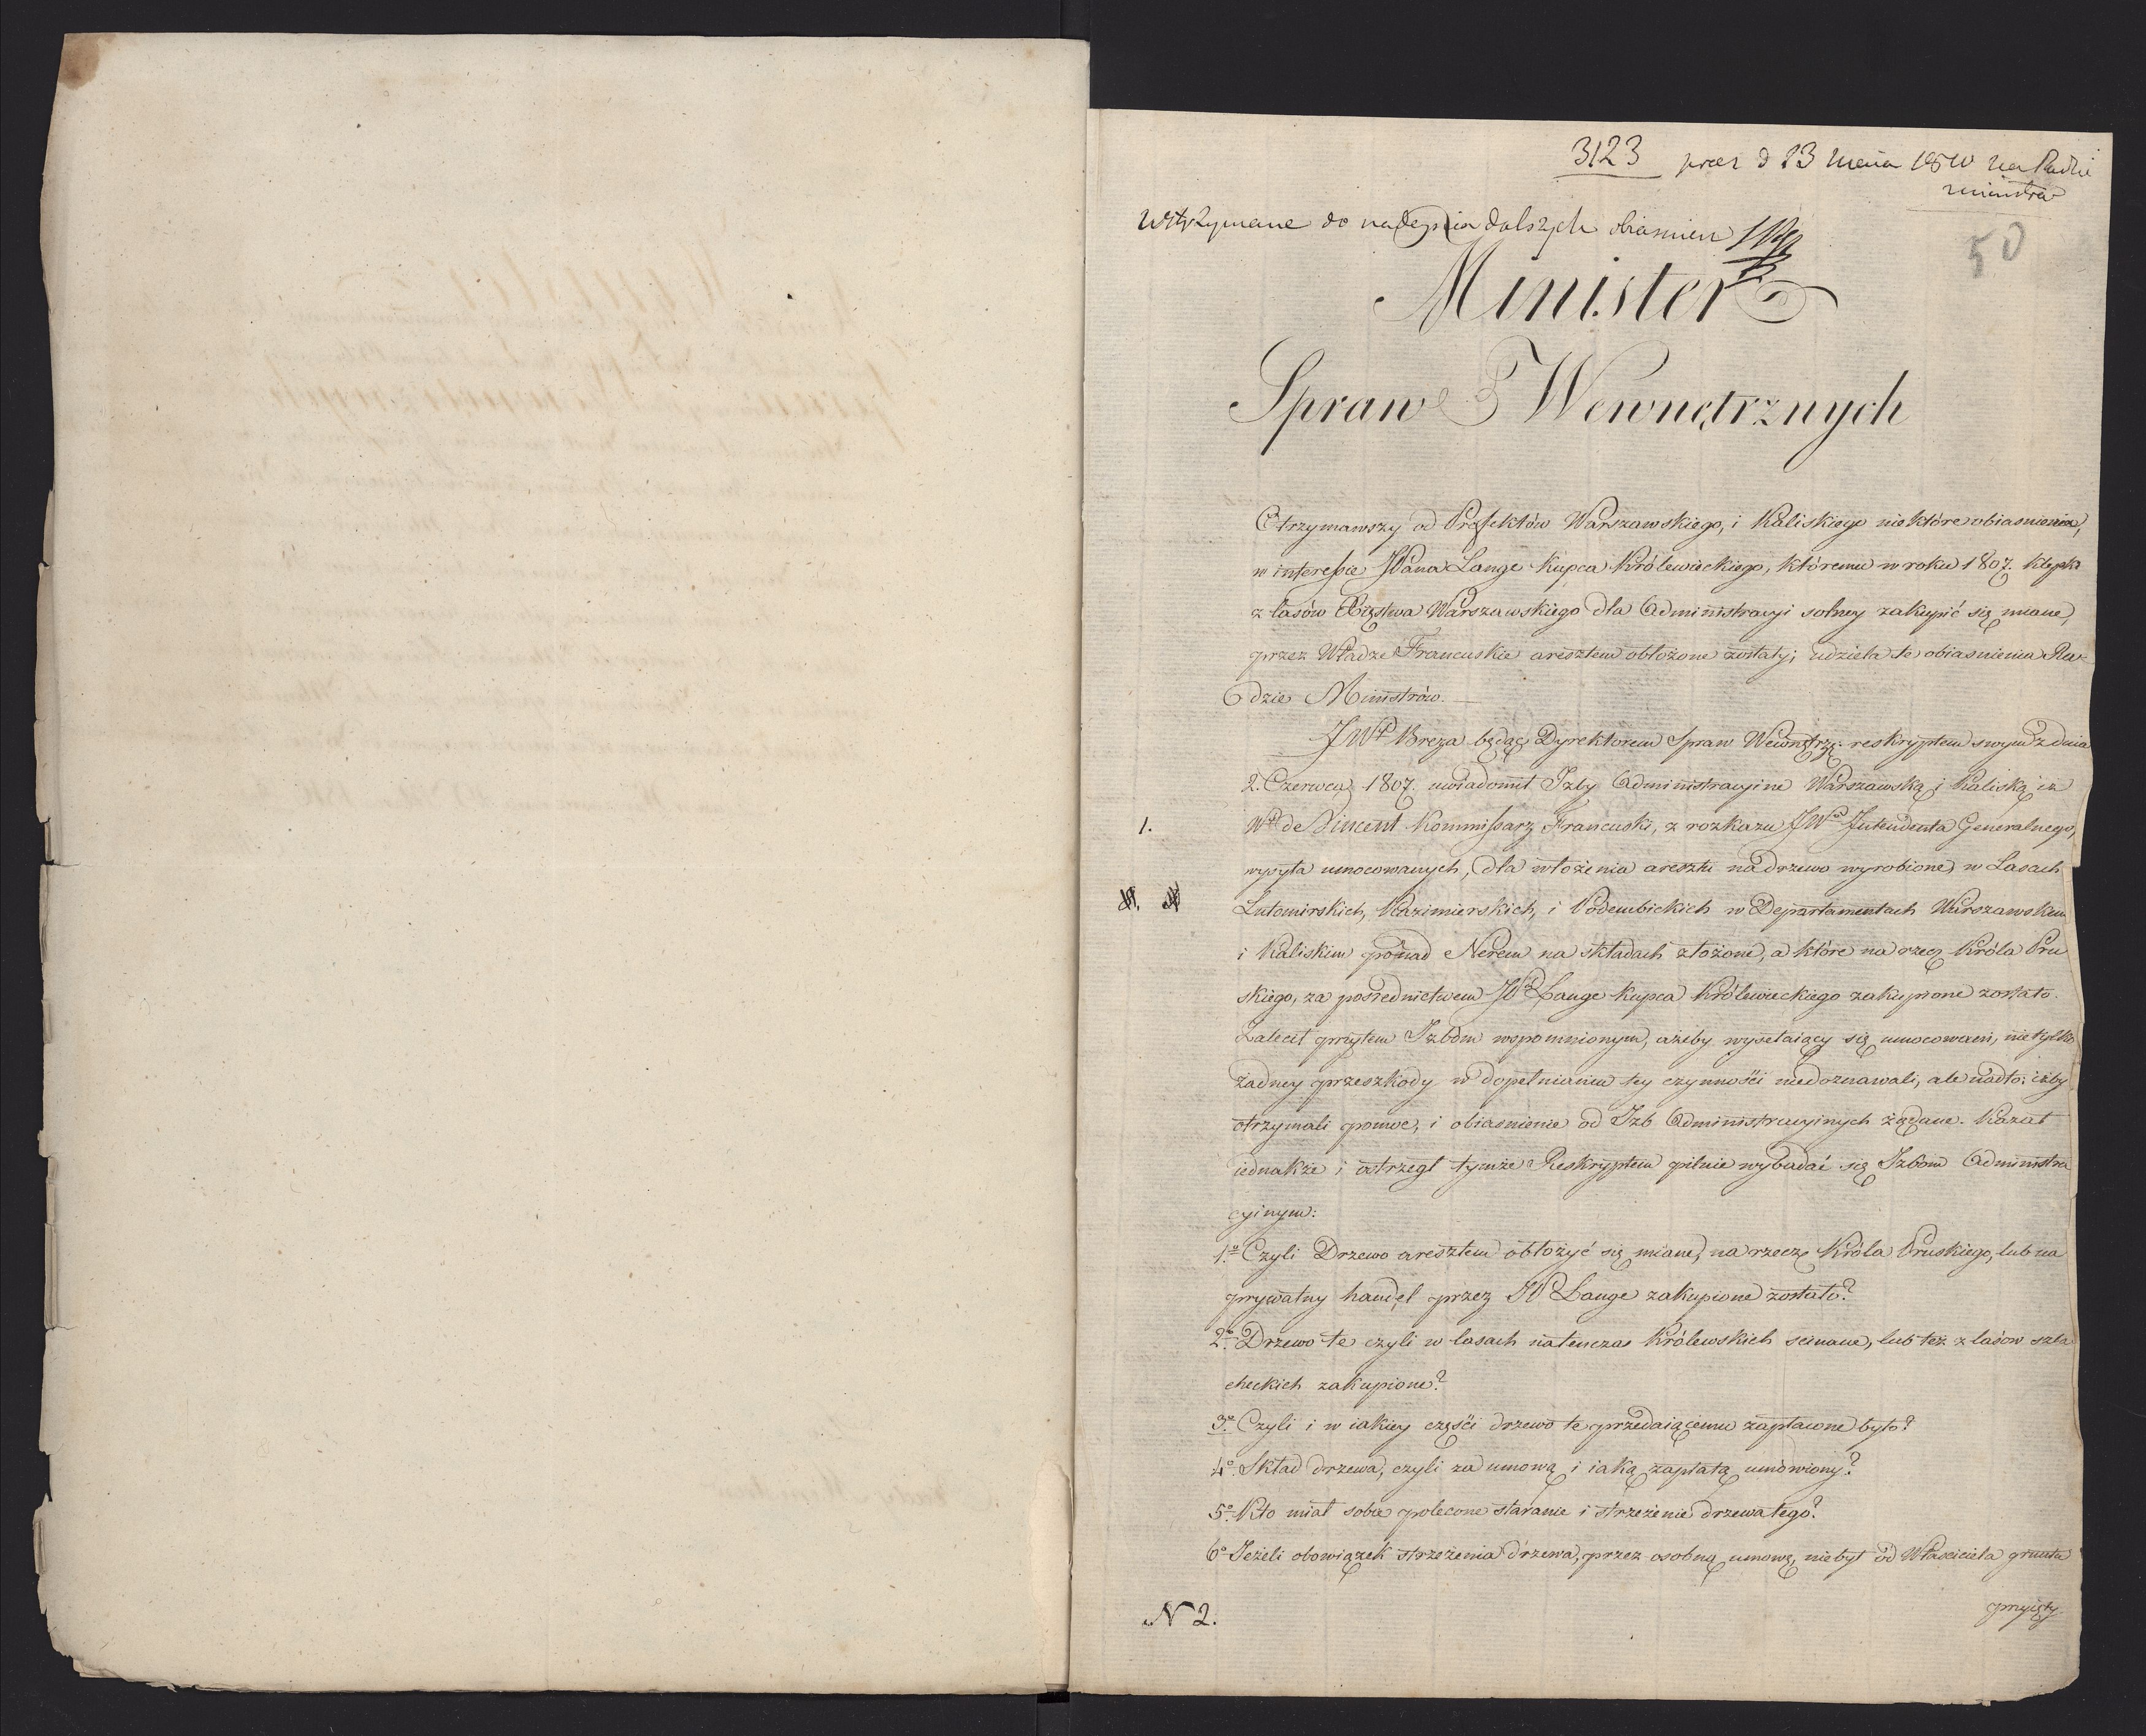 3123 prez d 23 1810 na Radzie
ministrów
Wstrzymane do nadeyścia dalszych obiasnien
50
Minister
Spraw Wewnętrznych
Otrzymawszy od Prefektów Warszawskiego, i Kaliskiego niektóre obiasnienia,
w interessie JPana Lange Kupca Królewieckiego, któremu w roku 1807. klepki
z lasów Xięstwa Warszawskiego dla Administracyi solney zakupić się miane,
przez Władze Francuskie aresztem obłożone zostały; udziela te obiasnienia Ra-
dzie Ministrów. —
JWP. Breza będąc Dyrektorem Spraw Wewnętrz: reskryptem swym z dnia
2. Czerwca 1807. uwiadomił Izby Administracyine Warszawską i Kaliską iż
1. WP. de Vincent Kommissarz Francuski, z rozkazu JWo Intendenta Generalnego,
wysyła umocowanych, dla włożenia aresztu na drzewo wyrobione w Lasach
Lutomirskich, Kazimierskich, i Podembickich w Departamentach Warszawskim
i Kaliskim ponad Nerem na składach złożone, a które na rzecz Króla Pru
skiego, za posrednictwem JP. Lange Kupca Królewieckiego zakupione zostało.
Zalecił przytem Izbom wspomnionym, ażeby wysełaiący się umocowani, nietylko
żadney przeszkody w dopełnianiu tey czynności niedoznawali, ale nadto: iżby
otrzymali pomoc, i obiasnienie od Izb Administracyinych żądane. Kazał
iednakże i ostrzegł tymże Reskryptem pilnie wybadać się Izbom Administra
cyinym:
1o. Czyli Drzewo aresztem obłożyć się miane, na rzecz Króla Pruskiego, lub na
prywatny handel przez JP Lange zakupione zostało?
2o. Drzewo te czyli w lasach natenczas Królewskich scinane, lub też z lasów szla
checkich zakupione?
3o. Czyli i w iakiey części drzewo te przedaiącemu zapłacone było?
4o. Skład drzewa, czyli za umową i iaką zapłatą umówiony?
5o. Kto miał sobie polecone staranie i strzeżenie drzewa tego?
6o Jeżeli obowiązek strzeżenia drzewa, przez osobną umowę, niebył od Właściciela gruntu
N 2.
przyięty